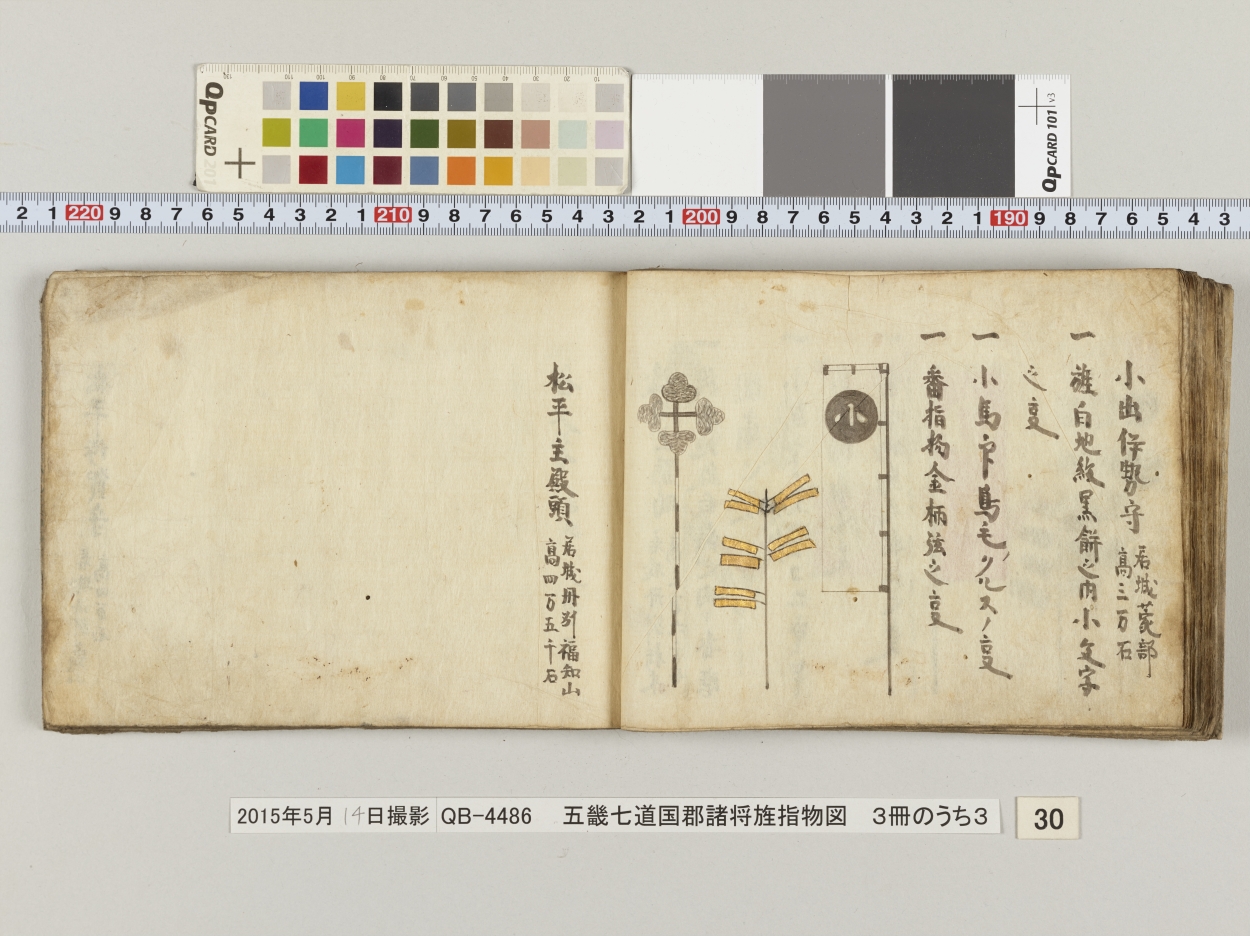 QpCARD 201
QpCARD 101 v3
2 1 220 9 8 7 6 5 4 3 2 1 210 9 8 7 6 5 4 3 2 1 200 9 8 7 6 5 4 3 2 1 190 9 8 7 6 5 4 3
小出伊勢守
居城薗部
高三万石
一 旌白地紋黒餅之内小文字
之夏
一 小馬印鳥毛クルスノ夏
一 番指物金柄弦之夏
小
松平主殿頭
居城丹州福知山
高四万五千石
2015年5月14日撮影 QB-4486 五畿七道国郡諸将旌指物図 3冊のうち3
30